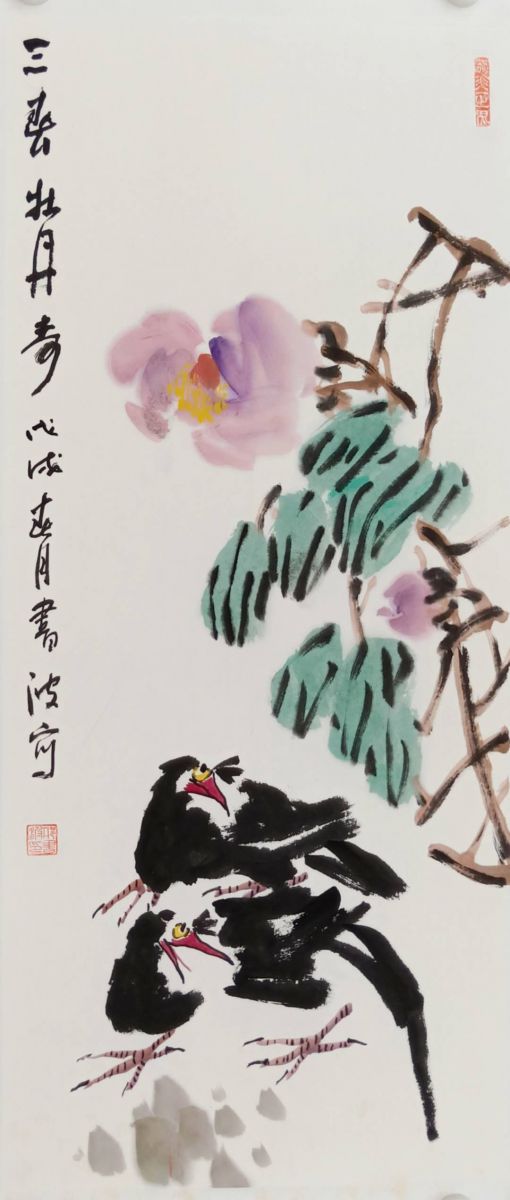 三春牡丹奇 戊戌春月書波写